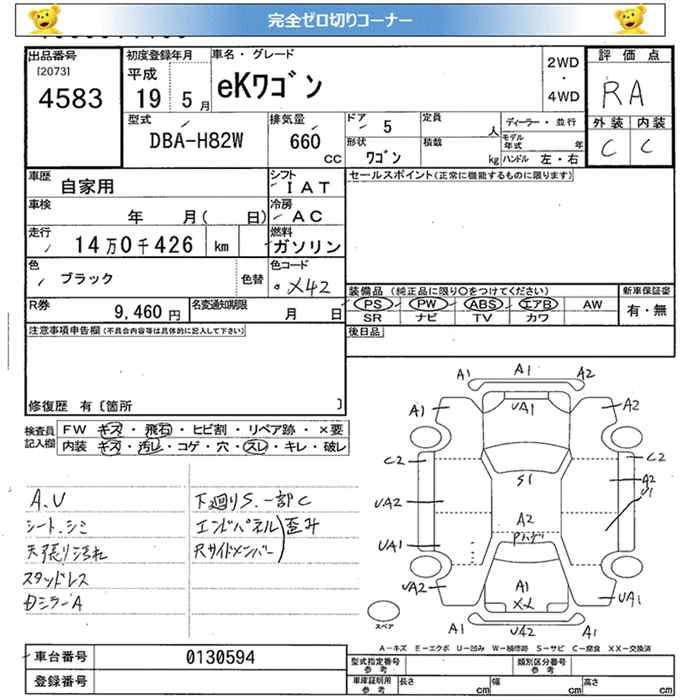 完全ゼロ切りコーナー
出品番号
[2073]
4583
初度登録年月
平成
19 5 月
車名・グレード
eKワゴン
2WD
・
4WD
評価点
RA
外装 内装
C C
型式
DBA-H82W
排気量
660
CC
ドア 5
形状
ワゴン
定員
人
積数
kg
ディーラー・並行
モデル
年式 年
ハンドル 左・右
車歴
自家用
シフト
I A T
セールスポイント(正常に機能するものに限ります)
車検
年 月( 日)
冷房
A C
走行
14万0千426 km
燃料
ガソリン
色
ブラック
色替
色コード
X42
装備品 (純正品に限り○をつけてください)
PS PW ABS エアB AW
SR ナビ TV カワ
新車保証書
有・無
R券
9,460 円
名変通知期限
月 日
後日品
注意事項申告欄(不具合内容等は具体的に記入して下さい)
修復歴 有〔箇所 〕
検査員
記入欄
FW キズ・飛石・ヒビ割・リペア跡・×要
内装 キズ・汚レ・コゲ・穴・スレ・キレ・破レ
A.U
シート.シミ
天張り汚れ
スタッドレス
Dミラー A
下廻りS.一部C
エンドパネル
Rサイドメンバー
歪み
A1 A1 A2
A1 UA1 A2
C2 C2
S1 A2
U1
UA2
A2
UA1
UA2 A1 UA1
XX
A1 U42 A1
スペア
A-キズ E-エクボ U-凹み W-補修跡 S-サビ C-腐食 XX-交換済
車台番号
0130594
登録番号
型式指定番号
参考
類別区分番号
参考
車庫証明用
参考
長さ cm 幅 cm 高さ cm